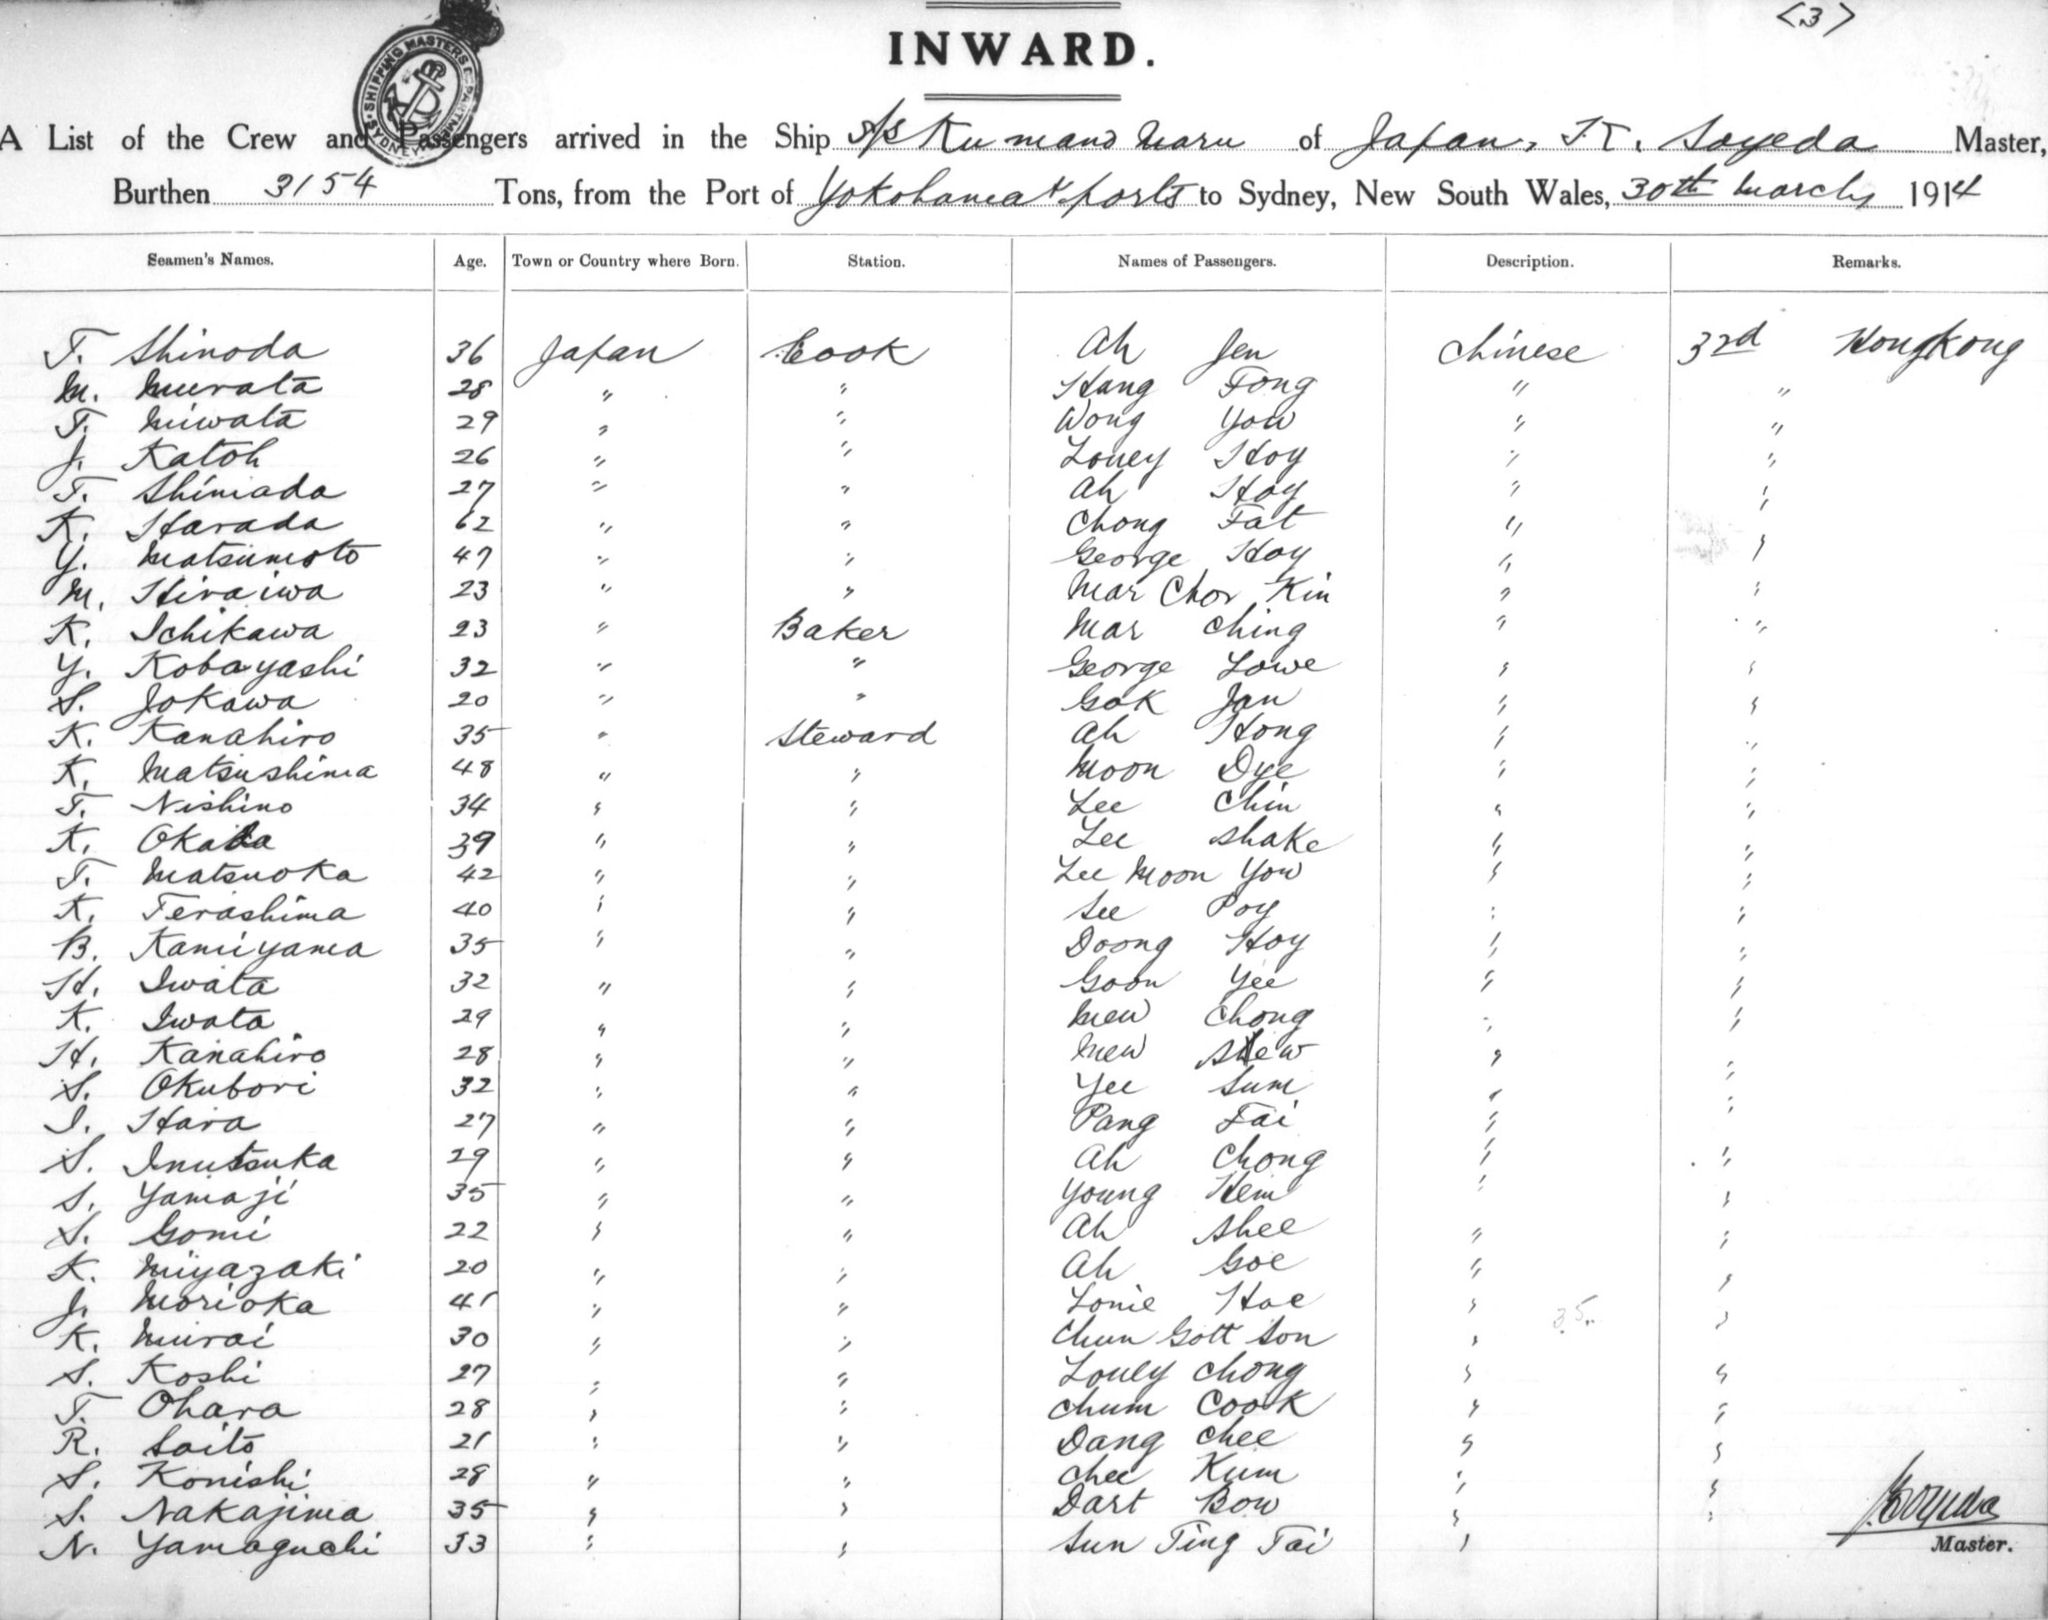 <3>
INWARD.
SHIPPING MASTERS DEPARTMENT SYDNEY
A List of the Crew and Passengers arrived in the Ship S/S Kumano Maru of Japan, K. Soyeda Master,
Burthen 3154 Tons, from the Port of Yokohama & ports to Sydney, New South Wales, 30th March 1914
Seamen's Names. Age. Town or Country where Born. Station. Names of Passengers. Description. Remarks.
T. Shinoda 36 Japan Cook Ah Jen Chinese 3rd Hongkong
M. Murata 28 " " Hang Fong " "
T. Miwata 29 " " Wong Yow " "
J. Katoh 26 " " Louey Hoy " "
T. Shimada 27 " " Ah Hoy " "
K. Harada 62 " " Chong Fat " "
Y. Matsumoto 47 " " George Hoy " "
M. Hiraiwa 23 " " Mar Chor Kin " "
K. Ichikawa 23 " Baker Mar Ching " "
Y. Kobayashi 32 " " George Lowe " "
S. Jokawa 20 " " Gok Jan " "
K. Kanahiro 35 " Steward Ah Hong " "
K. Matsushima 48 " " Moon Dye " "
T. Nishino 34 " " Lee Chin " "
K. Okada 39 " " Lee Shake " "
T. Matsuoka 42 " " Lee Moon You " "
K. Terashima 40 " " See Poy " "
B. Kamiyama 35 " " Doong Hoy " "
H. Iwata 32 " " Goon Yee " "
K. Iwata 29 " " Mew Chong " "
H. Kanahiro 28 " " Mew " "
S. Okubori 32 " " Yee Sum " "
I. Hara 27 " " Pang Fai " "
S. Inutsuka 29 " " Ah Chong " "
S. Yamaji 35 " " Young Hem " "
S. Gomi 22 " " Ah Shee " "
K. Miyazaki 20 " " Ah Goe " "
J. Morioka 41 " " Lonie Hoe " "
K. Murai 30 " " Chun Gott Son " "
S. Koshi 27 " " Louey Chong " "
T. Ohara 28 " " Chum Cook " "
R. Saito 21 " " Dang Chee " "
S. Konishi 28 " " Chee Kum " "
S. Nakajima 35 " " Dart Bow " "
N. Yamaguchi 33 " " Sun Ting Tai "
Master.